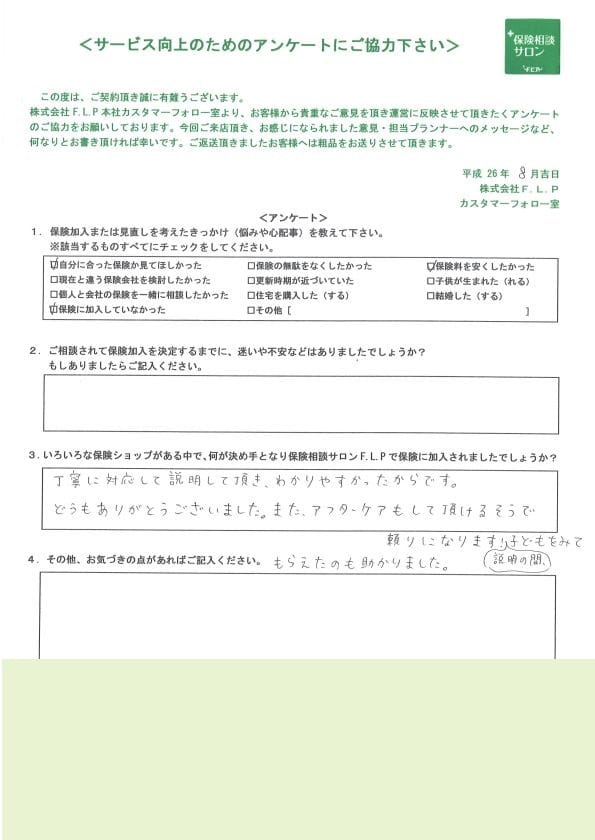 ＜サービス向上のためのアンケートにご協力下さい＞
+保険相談
サロン
F.L.P
この度は、ご契約頂き誠に有難うございます。
株式会社F.L.P本社カスタマーフォロー室より、お客様から貴重なご意見を頂き運営に反映させて頂きたくアンケート
のご協力をお願いしております。今回ご来店頂き、お感じになられました意見・担当プランナーへのメッセージなど、
何なりとお書き頂ければ幸いです。ご返送頂きましたお客様へは粗品をお送りさせて頂きます。
平成 26 年 8 月吉日
株式会社F.L.P
カスタマーフォロー室
＜アンケート＞
1．保険加入または見直しを考えたきっかけ（悩みや心配事）を教えて下さい。
※該当するものすべてにチェックをしてください。
☑自分に合った保険か見てほしかった □保険の無駄をなくしたかった ☑保険料を安くしたかった
□現在と違う保険会社を検討したかった □更新時期が近づいていた □子供が生まれた（れる）
□個人と会社の保険を一緒に相談したかった □住宅を購入した（する） □結婚した（する）
☑保険に加入していなかった □その他［ ］
2．ご相談されて保険加入を決定するまでに、迷いや不安などはありましたでしょうか？
もしありましたらご記入ください。
3．いろいろな保険ショップがある中で、何が決め手となり保険相談サロンF.L.Pで保険に加入されましたでしょうか？
丁寧に対応して説明して頂き、わかりやすかったからです。
どうもありがとうございました。また、アフターケアもして頂けるそうで
頼りになります!!子どもをみて
4．その他、お気づきの点があればご記入ください。
もらえたのも助かりました。
説明の間、